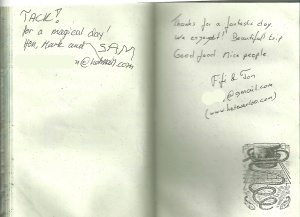 TACK!
for a magical day!
Hen, Mark and
SAM
@hotmail.com
Thanks for a fantastic day
we enjoyed! Beautiful trip
Good food. Nice people
& Jon
@gmail.com